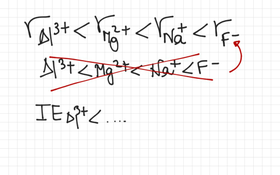 r_Al³⁺ < r_Mg²⁺ < r_Na⁺ < r_F⁻
Al³⁺ < Mg²⁺ < Na⁺ < F⁻
IE_Al³⁺ < ....